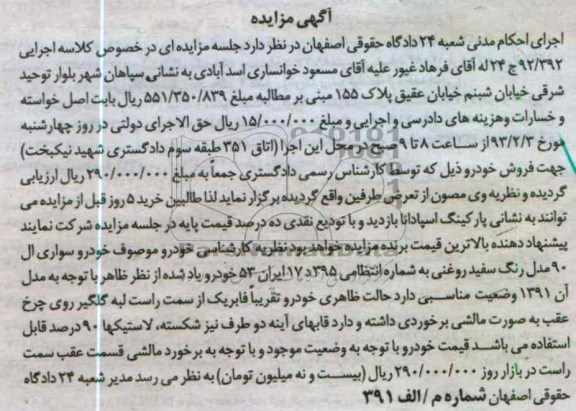 آگهی مزایده
اجرای احکام مدنی شعبه ۲۴ دادگاه حقوقی اصفهان در نظر دارد جلسه مزایده ای در خصوص کلاسه اجرایی
۹۲/۳۹۲ج ۲۴ له آقای فرهاد غیور علیه آقای مسعود خوانساری اسد آبادی به نشانی سپاهان شهر بلوار توحید
شرقی خیابان شبنم خیابان عقیق پلاک ۱۵۵ مبنی بر مطالبه مبلغ ۵۵۱/۳۵۰/۸۳۹ ریال بابت اصل خواسته
و خسارات وهزینه های دادرسی و اجرایی و مبلغ ۱۵/۰۰۰/۰۰۰ ریال حق الاجرای دولتی در روز چهارشنبه
مورخ ۹۳/۲/۳ از ساعت ۸ تا ۹ صبح در محل این اجرا (اتاق ۳۵۱ طبقه سوم دادگستری شهید نیکبخت)
جهت فروش خودرو ذیل که توسط کارشناس رسمی دادگستری جمعاً به مبلغ ۲۹۰/۰۰۰/۰۰۰ ریال ارزیابی
گردیده و نظریه وی مصون از تعرض طرفین واقع گردیده برگزار نماید لذا طالبین خرید ۵ روز قبل از مزایده می
توانند به نشانی پارکینگ اسپادانا بازدید و با تودیع نقدی ده درصد قیمت پایه در جلسه مزایده شرکت نمایند
پیشنهاد دهنده بالاترین قیمت برنده مزایده خواهد بود نظریه کارشناسی خودرو موصوف خودرو سواری ال
۹۰ مدل رنگ سفید روغنی به شماره انتظامی ۳۹۵د۱۷ ایران ۵۳ خودرو یاد شده از نظر ظاهر با توجه به مدل
آن ۱۳۹۱ وضعیت مناسبی دارد حالت ظاهری خودرو تقریباً فابریک از سمت راست لبه گلگیر روی چرخ
عقب به صورت مالشی برخوردی داشته و دارد قابهای آینه دو طرف نیز شکسته، لاستیکها ۹۰ درصد قابل
استفاده می باشد قیمت خودرو با توجه به وضعیت موجود و با توجه به برخورد مالشی قسمت عقب سمت
راست در بازار روز ۲۹۰/۰۰۰/۰۰۰ ریال (بیست و نه میلیون تومان) به نظر می رسد مدیر شعبه ۲۴ دادگاه
حقوقی اصفهان شماره م / الف ۳۹۱